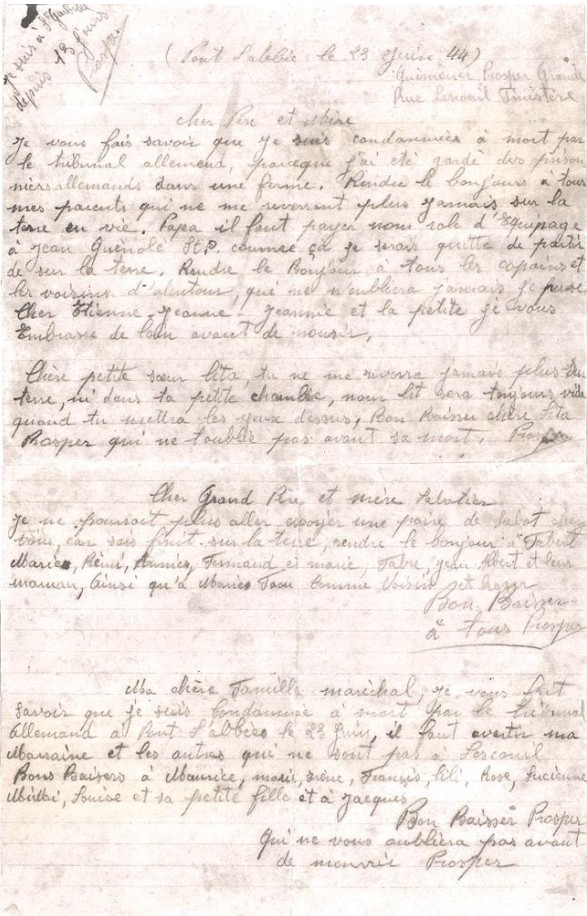 Je suis à St Gabriel
depuis 18 Juin
Prosper
(Pont Labbée le 23 Juin 44)
Quéméner Prosper Grande
Rue Lesconil Finistère
Cher Père et Mère
Je vous fais savoir que je suis condannées à mort par
le tribunal allemend, parceque j'ai été gardé des prison
niers allemands dans une ferme. Rendre le bonjours à tous
mes parents qui ne me reverront plus jamais sur la
terre en vie. Papa il faut payer mon role d'équipage
à Jean Guénolé St P. coumee ça je serais quitte de partir
de sur la terre. Rendre le Bonjour à tous les copains et
les voisins d'alentour, qui ne m'oubliera jamais je pense
Cher Etienne - Jeanne - Jeannie et la petite je vous
Embrasse de loin avant de mourir.
Chère petite sœur Lita, tu ne me reverra jamais plus sur
terre, ni dans ta petite chambre, mon lit sera toujours vide
quand tu mettra les yeux dessus, Bon Baiser chère Lita
Prosper qui ne t'oublie pas avant sa mort. Prosper
Cher Grand Père et mère
Je ne pourrait plus aller essayer une paire de sabot chez
vous car sais finit sur la terre, rendre le bonjour à
Marie, Rémi, Annie, Fernand et marie, jean Albert et leur
maman, Ainsi qu'à Maries Voisin et
Bon Baisser
à tous Prosper
Ma chère Famille maréchal, je vous fait
savoir que je suis Condannée à mort par le tribunal
Allemand à Pont L'abbée le 23 Juin, il faut avertir ma
Marraine et les autres qui ne sont pas à Lesconil
Bons Baisers à Maurice, marie, François, Lili, Rose, Lucienne
Louise et sa petite fille et à Jacques
Bon Baisser Prosper
qui ne vous oubliera pas avant
de mourrir Prosper